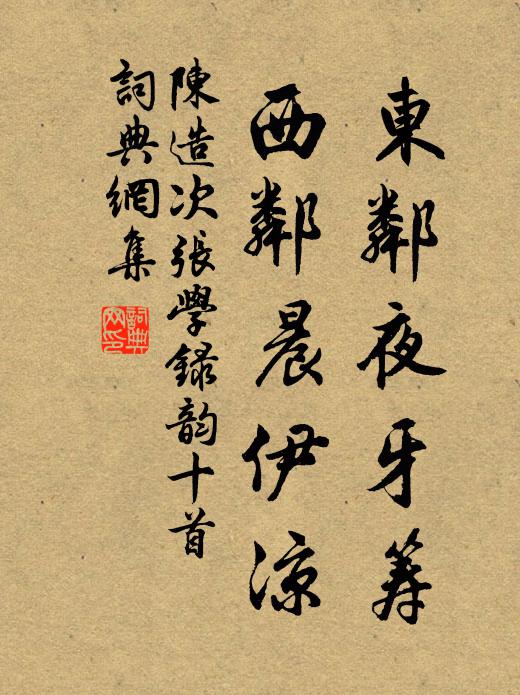 東鄰夜牙筭
西鄰晨伊涼
陳造次張學錄韵十首
詞典網集
詞典網印